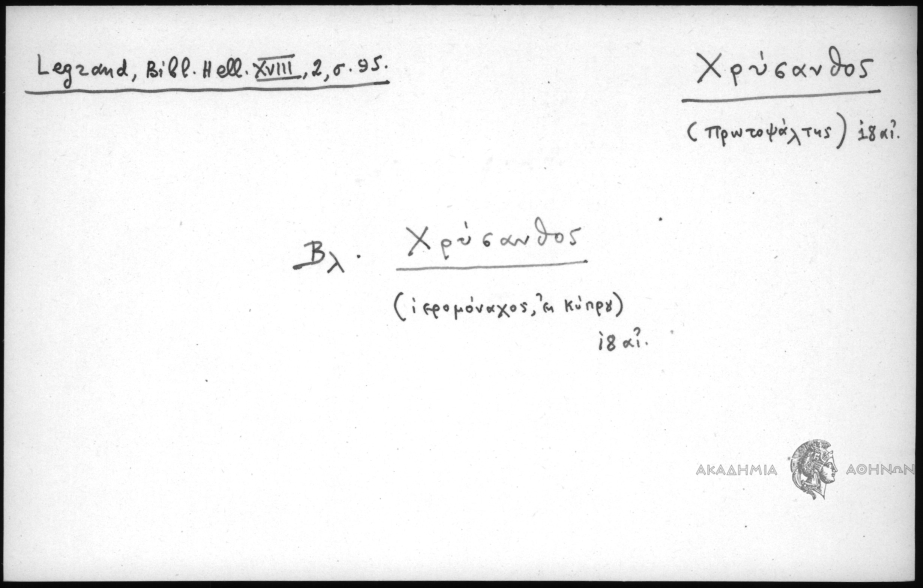 Legrand, Bibl. Hell. XVIII, 2, σ. 95.
Χρύσανθος
(πρωτοψάλτης) 18 αἰ.
Βλ. Χρύσανθος
(ἱερομόναχος, ἐκ Κύπρου)
18 αἰ.
ΑΚΑΔΗΜΙΑ ΑΘΗΝΩΝ